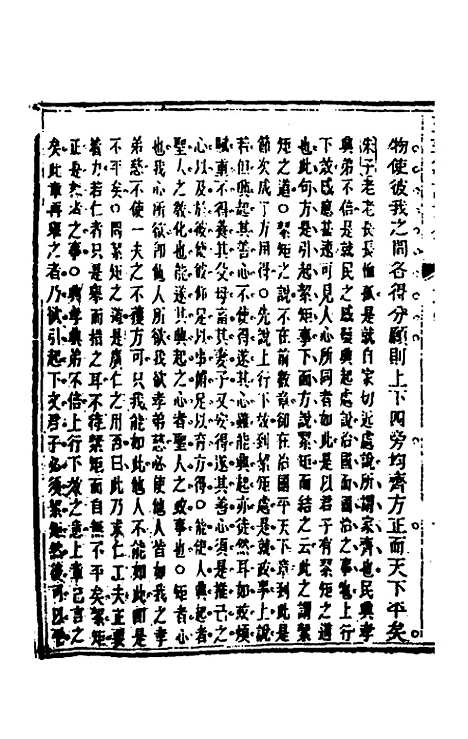 物使彼我之間各得分願則上下四旁均齊方正而天下平矣
朱子老老長長恤孤是就自家切近處說所謂家齊也民興孝
興弟不倍是就民之感發興起處說治國而國治之事也上行
下效感應甚速可見人心所同者如此是以君子有絜矩之道
也此句方是引起絜矩事下面方說絜矩而結之云此之謂絜
矩之道○絜矩之說不在前數章却在治國平天下章到此是
節次成了方用得○先說上行下效到絜矩處是就政事上說
若但興起其善心不使得遂其心雖能興起亦徒然耳如政煩
賦重不得養其父母畜其妻子又安得遂其善心須是推己之
心以及於彼使彼仰足以事俯足以育方得○能使人興起者
聖人之教化也能遂其興起之心者聖人之政事也○矩者心
也我心所欲即他人所欲我欲孝弟慈必使他人皆如我之孝
弟慈不使一夫之不獲方可只我能如此他人不能如此則是
不平矣○問絜矩之道是廣仁之用否曰此乃求仁工夫正要
着力若仁者只是舉而措之耳不待絜矩而自無不平矣絜矩
正是恕者之事○興孝興弟不倍上行下效之意上章已言之
矣此章再舉之者乃欲引起下文君子必須絜矩然後可以平